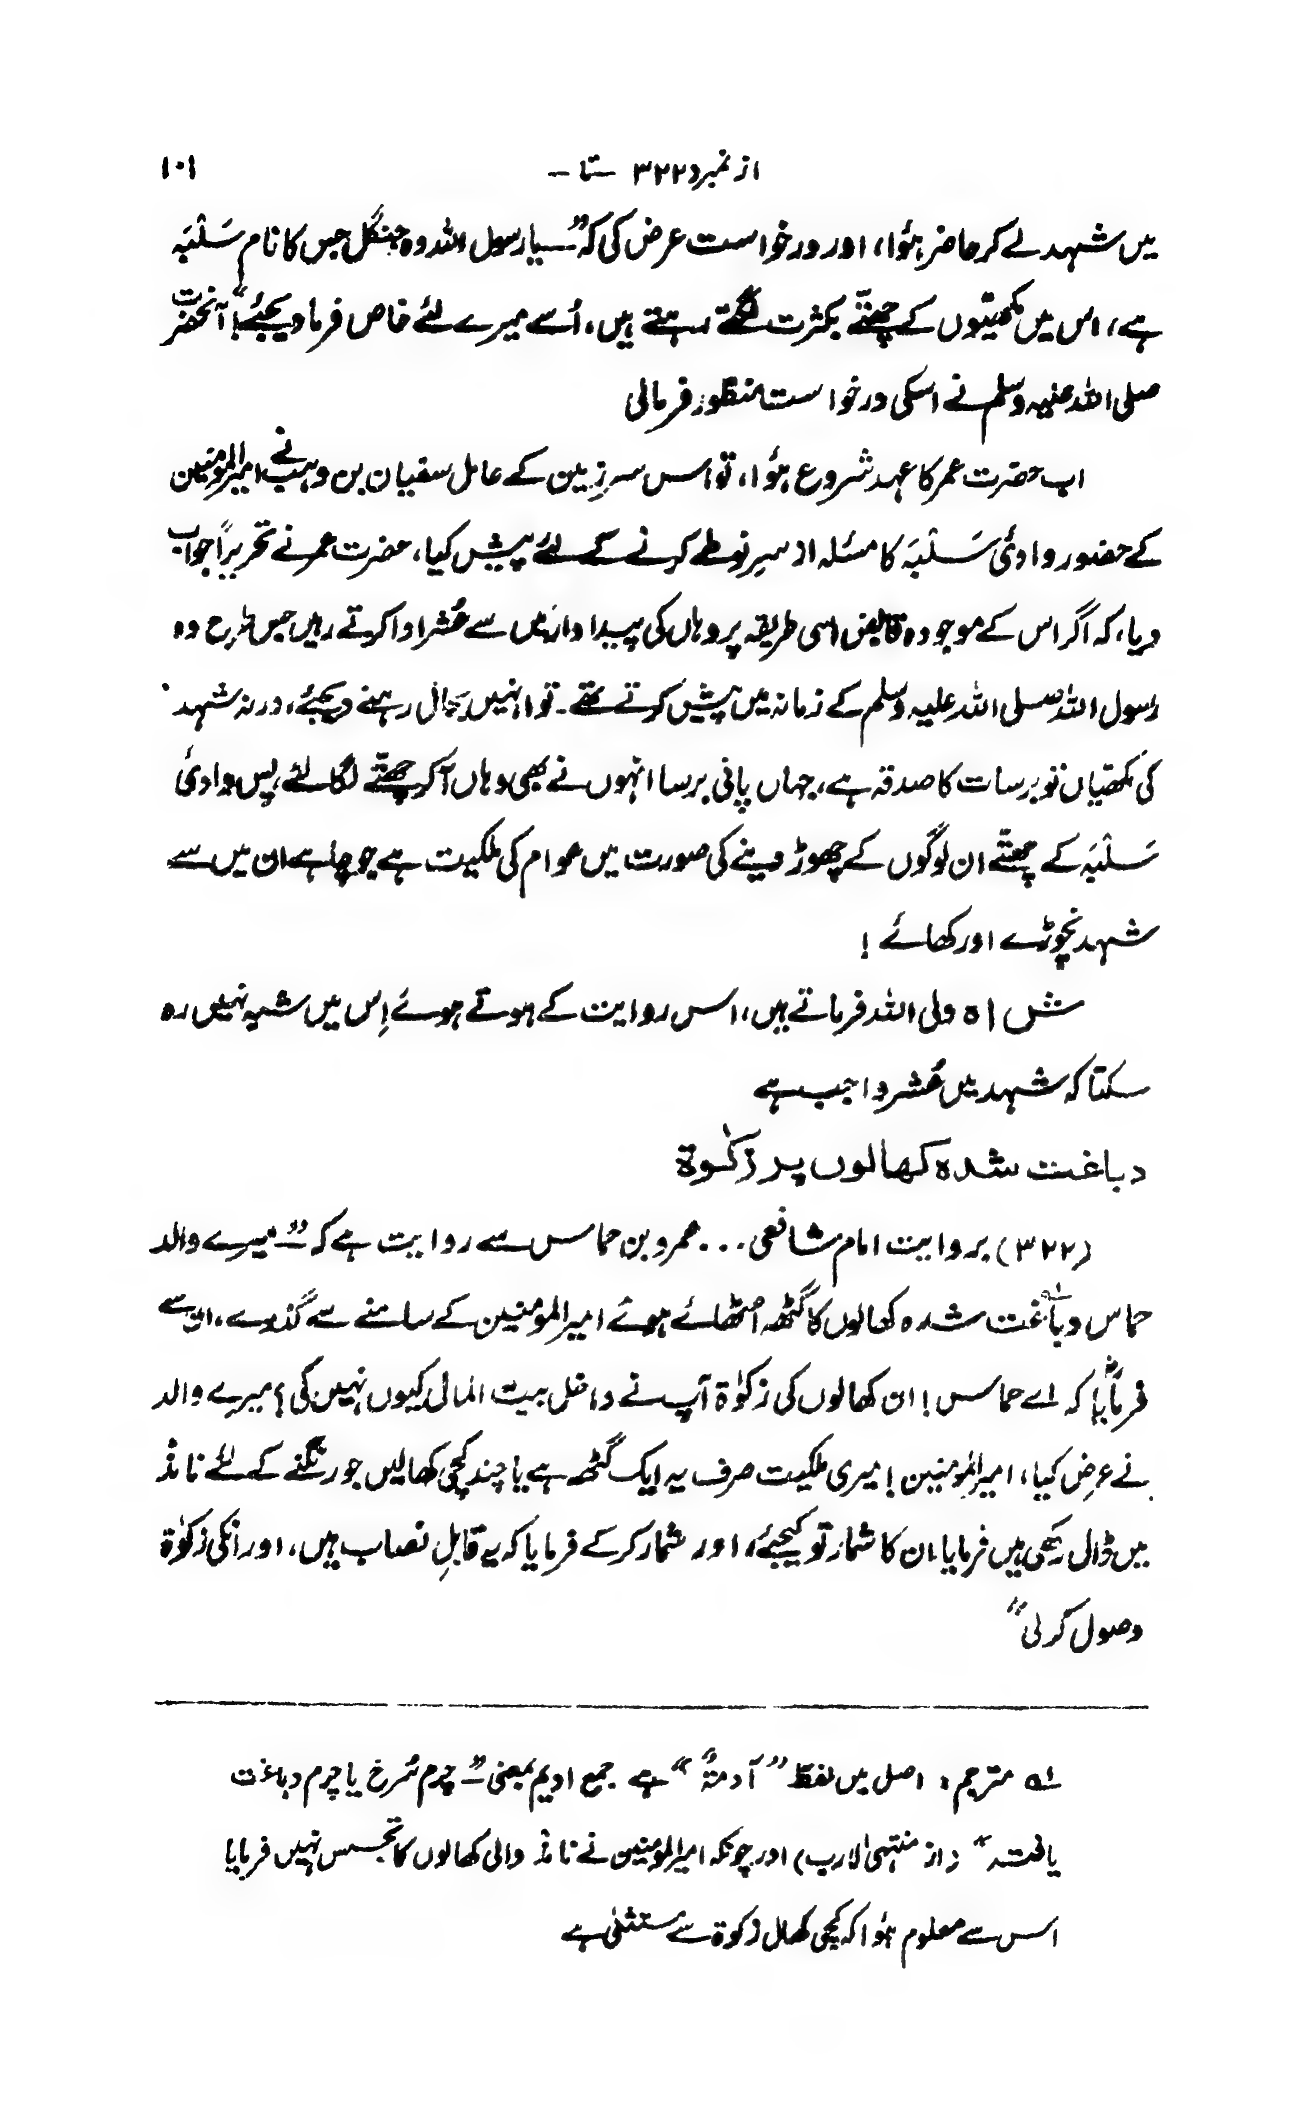 از نمبر ۳۲۲ تا — ۱۰۱
میں شہد لے کر حاضر ہؤا، اور درخواست عرض کی کہ ”یا رسول اللہ وہ جنگل جس کا نام سَلْبَہ
ہے، اس میں مکھیّوں کے چھتّے بکثرت لگتے رہتے ہیں، اُسے میرے لئے خاص فرما دیجئے“! آنحضرت
صلی اللہ علیہ وسلم نے اسکی درخواست منظور فرمالی
اب حضرت عمر کا عہد شروع ہؤا، تو اس سرزمین کے عامل سفیان بن وہب نے امیرالمؤمنین
کے حضور وادئ سَلْبَہ کا مسئلہ از سرِ نو طے کرنے کے لئے پیش کیا، حضرت عمر نے تحریراً جواب
دیا، کہ اگر اس کے موجودہ قابض اسی طریقہ پر وہاں کی پیداوار میں سے عُشر ادا کرتے رہیں جس طرح وہ
رسول اللہ صلی اللہ علیہ وسلم کے زمانہ میں پیش کرتے تھے۔ تو انہیں بحال رہنے دیجئے، ورنہ شہد
کی مکھیّاں تو برسات کا صدقہ ہے، جہاں پانی برسا انہوں نے بھی وہاں آ کر چھتّے لگا لئے پس وادئ
سَلْبَہ کے چھتّے ان لوگوں کے چھوڑ دینے کی صورت میں عوام کی ملکیت ہے جو چاہے ان میں سے
شہد نچوڑے اور کھائے !
شاہ ولی اللہ فرماتے ہیں، اس روایت کے ہوتے ہوئے اِس میں شبہ نہیں رہ
سکتا کہ شہد میں عُشر واجب ہے
دباغت شدہ کھالوں پر زکوٰۃ
(۳۲۲) بروایت امام شافعی ... عمرو بن حماس سے روایت ہے کہ ”میرے والد
حماس دباغت شدہ کھالوں کا گٹھہ اُٹھائے ہوئے امیرالمؤمنین کے سامنے سے گذرے، ان سے
فرمایا کہ اے حماس! ان کھالوں کی زکوٰۃ آپ نے داخل بیت المال کیوں نہیں کی؟ میرے والد
نے عرض کیا، امیرالمؤمنین! میری ملکیت صرف یہ ایک گٹھہ ہے یا چند کچی کھالیں جو رنگنے کے لئے ناند
میں ڈال رکھی ہیں فرمایا، ان کا شمار تو کیجئے، اور شمار کرکے فرمایا کہ یہ قابلِ نصاب ہیں، اور انکی زکوٰۃ
وصول کرلی“
لہ مترجم: اصل میں لفظ ”آدمۃٌ“ ہے جمع ادیم بمعنی ”چرم سُرخ یا چرم دباغت
یافتہ“ (از منتہی الارب) اور چونکہ امیرالمؤمنین نے ناند والی کھالوں کا تجسس نہیں فرمایا
اس سے معلوم ہؤا کہ کچی کھال زکوۃ سے مستثنیٰ ہے